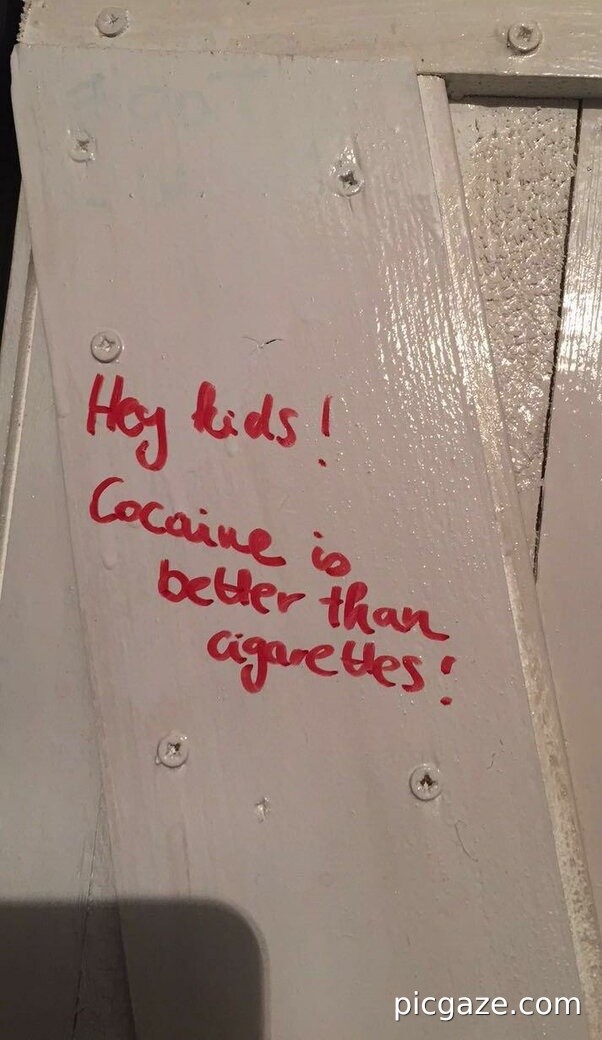 Hey kids!
Cocaine is
better than
cigarettes!
picgaze.com